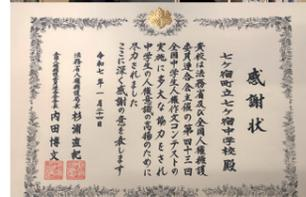 感謝状
七ケ宿町立七ケ宿中学校 殿
貴校は法務省及び全国人権擁護
委員連合会主催の第四十三回
全国中学生人権作文コンテストの
実施に多大な協力をされ
中学生の人権意識の高揚のために
尽力されました
ここに深く感謝の意を表します
令和七年一月二十四日
杉浦直紀
内田博文